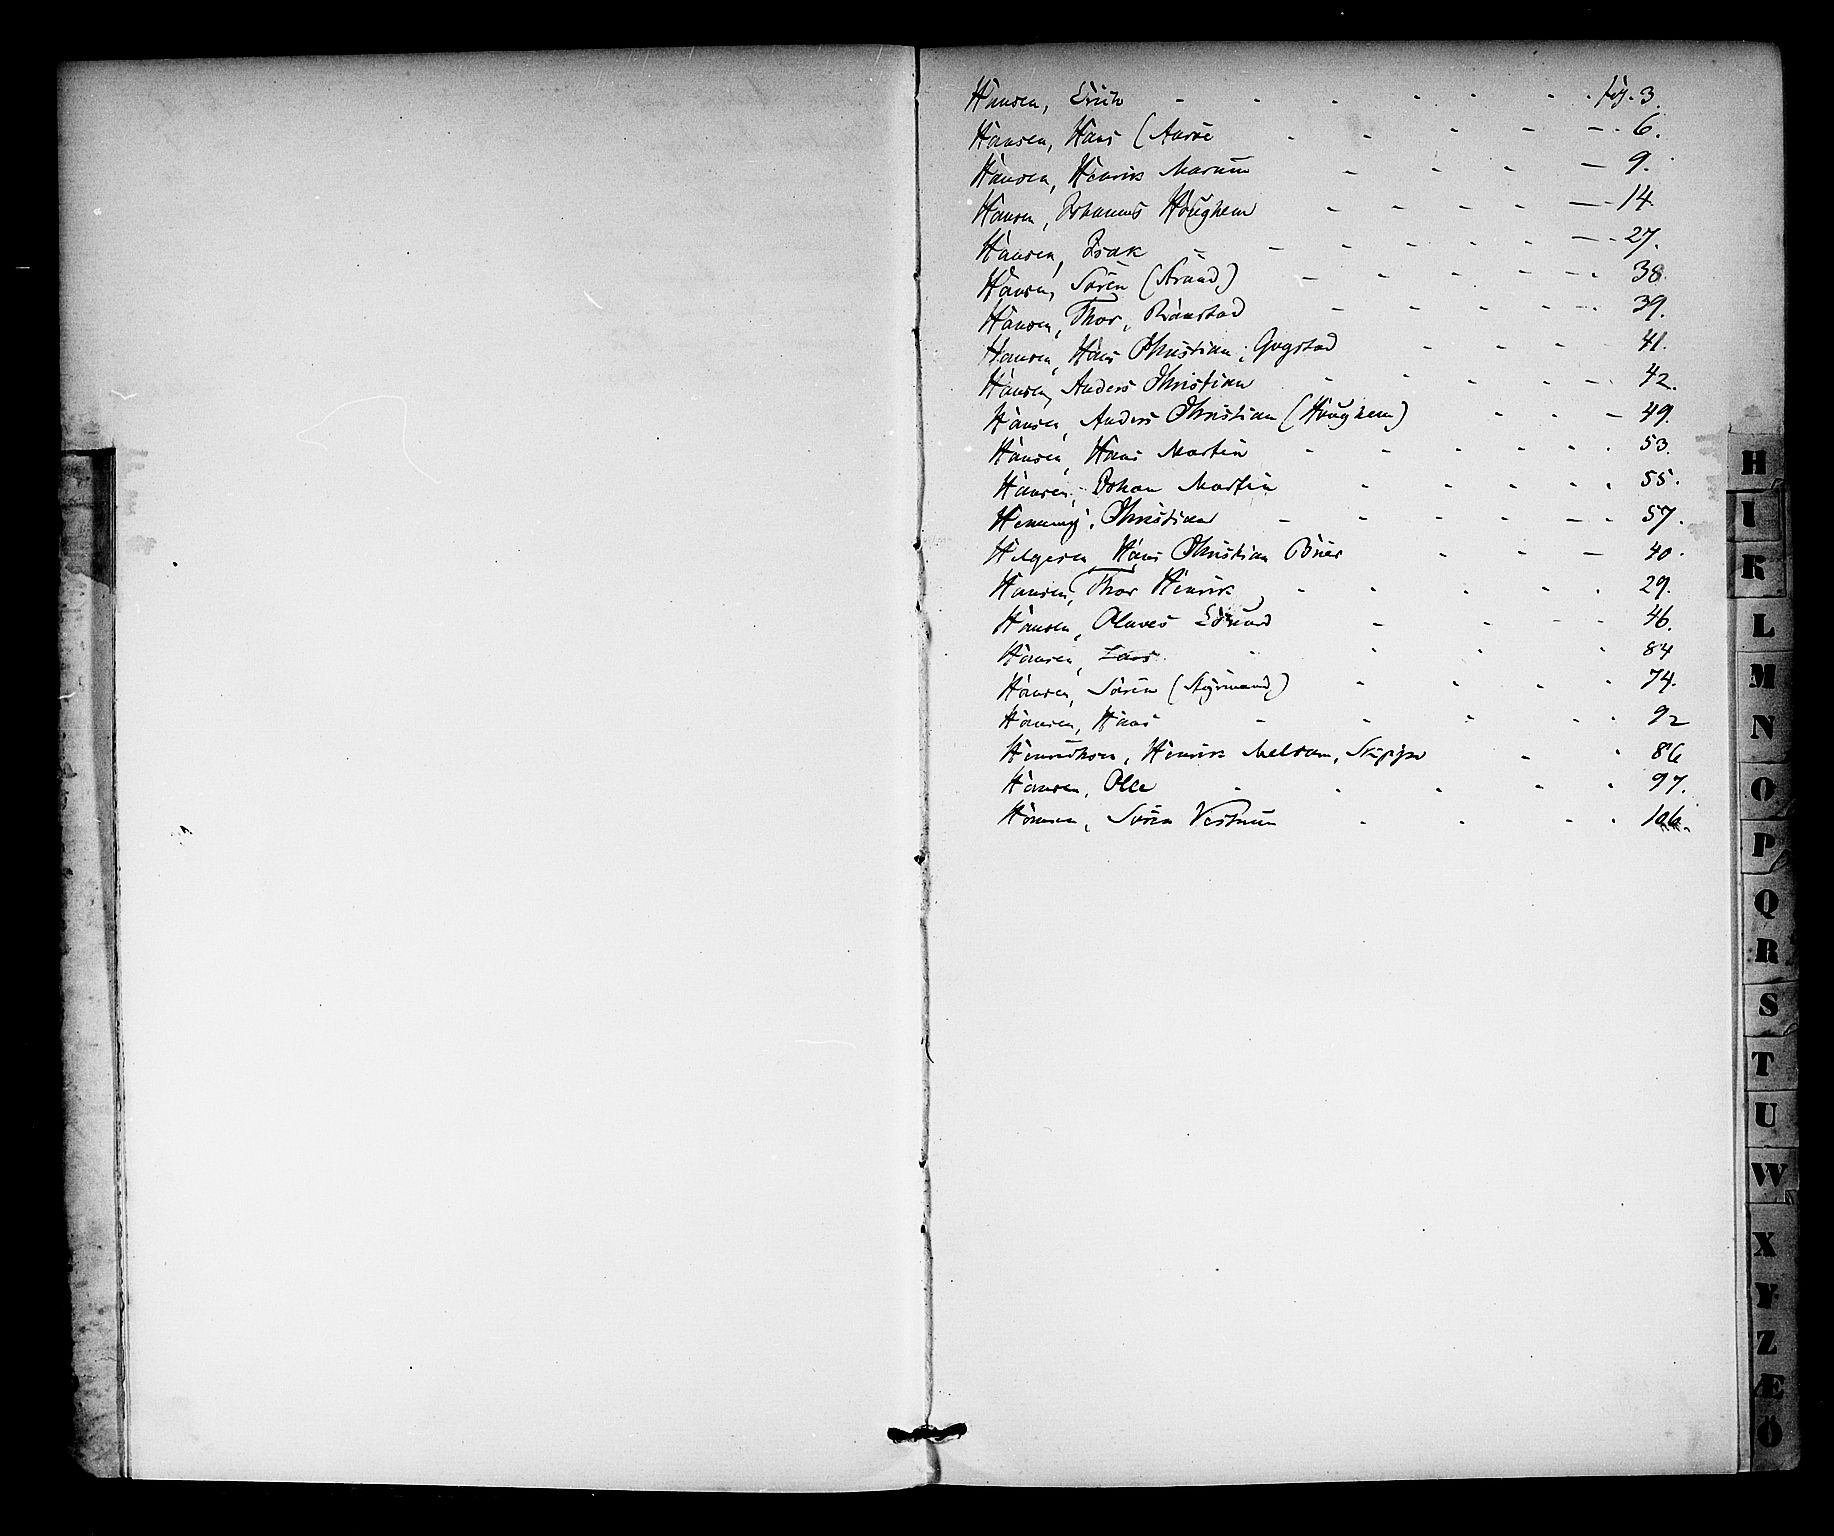 Hansen, Erich - - - - - - - fig. 3.
Hansen, Hans (Aarøe - - - - - 6.
Hansen, Henrik Marum - - - - - 9.
Hansen, Johannes Houghem - - - - - 14
Hansen, Isak - - - - - - - 27.
Hansen, Søren (Strand) - - - - - 38
Hansen, Thor, - - - - - 39.
Hansen, Hans Christian, Gogstad - - - - 41.
Hansen, Anders Christian - - - - - 42.
Hansen, Anders Christian (Houghem) - - - 49.
Hansen, Hans Martin - - - - - 53.
Hansen, Johan Martin - - - - - 55.
Henning, Christian - - - - - - 57.
Helgesen Hans Christian - - - 40.
Hansen, Thor Henrik - - - - - 29.
Hansen, Olaves Edvard - - - - 46.
Hansen, Lars - - - - 84
Hansen, Søren (Styrmand) - - - - 74.
Hansen, Hans - - - - - 92
Henriksen, Henrik Melsom, Skipper - - 86
Hansen, Olle - - - - - 97.
Hansen, Søren Vestrum - - - - 106.
H
I
K
L
M
N
O
P
Q
R
S
T
U
W
X
Y
Z
Æ
Ö